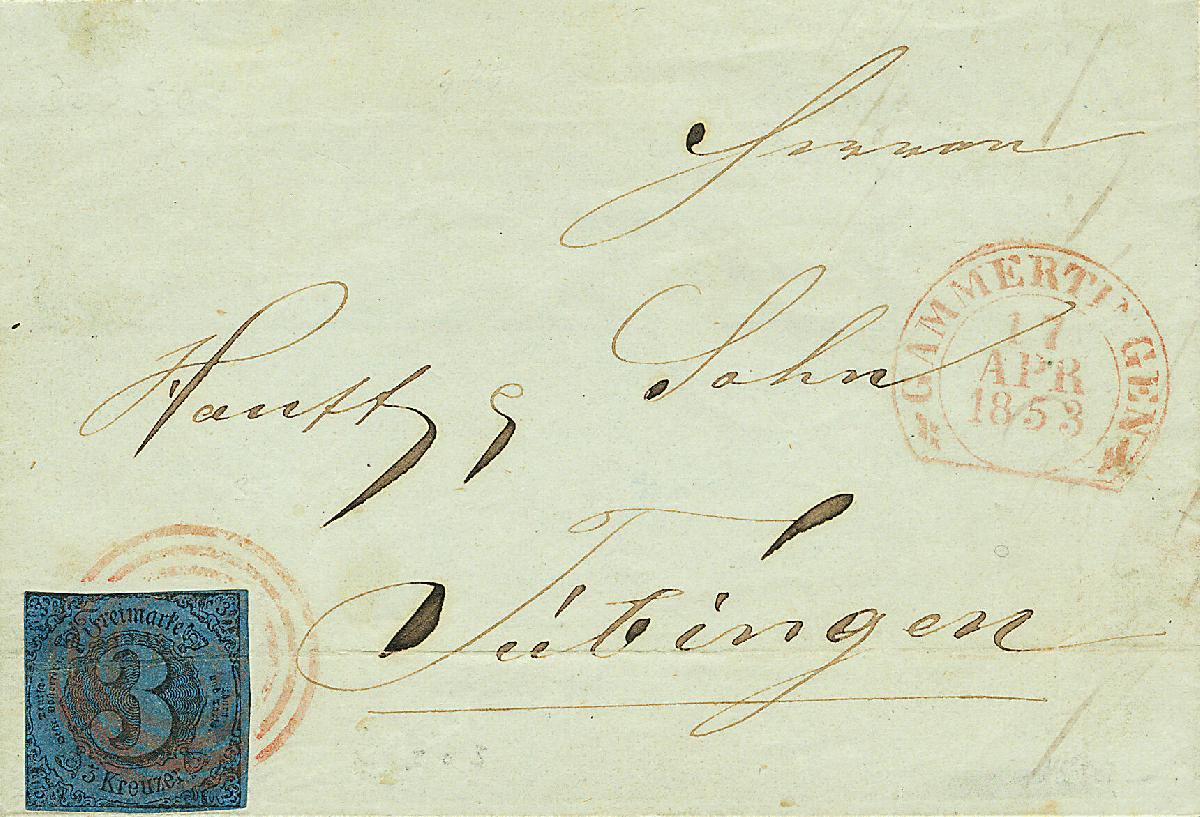 Herren
Hauff & Sohn
Tübingen
GAMMERTINGEN
17
APR
1853
Freimarke
3
3 Kreuzer